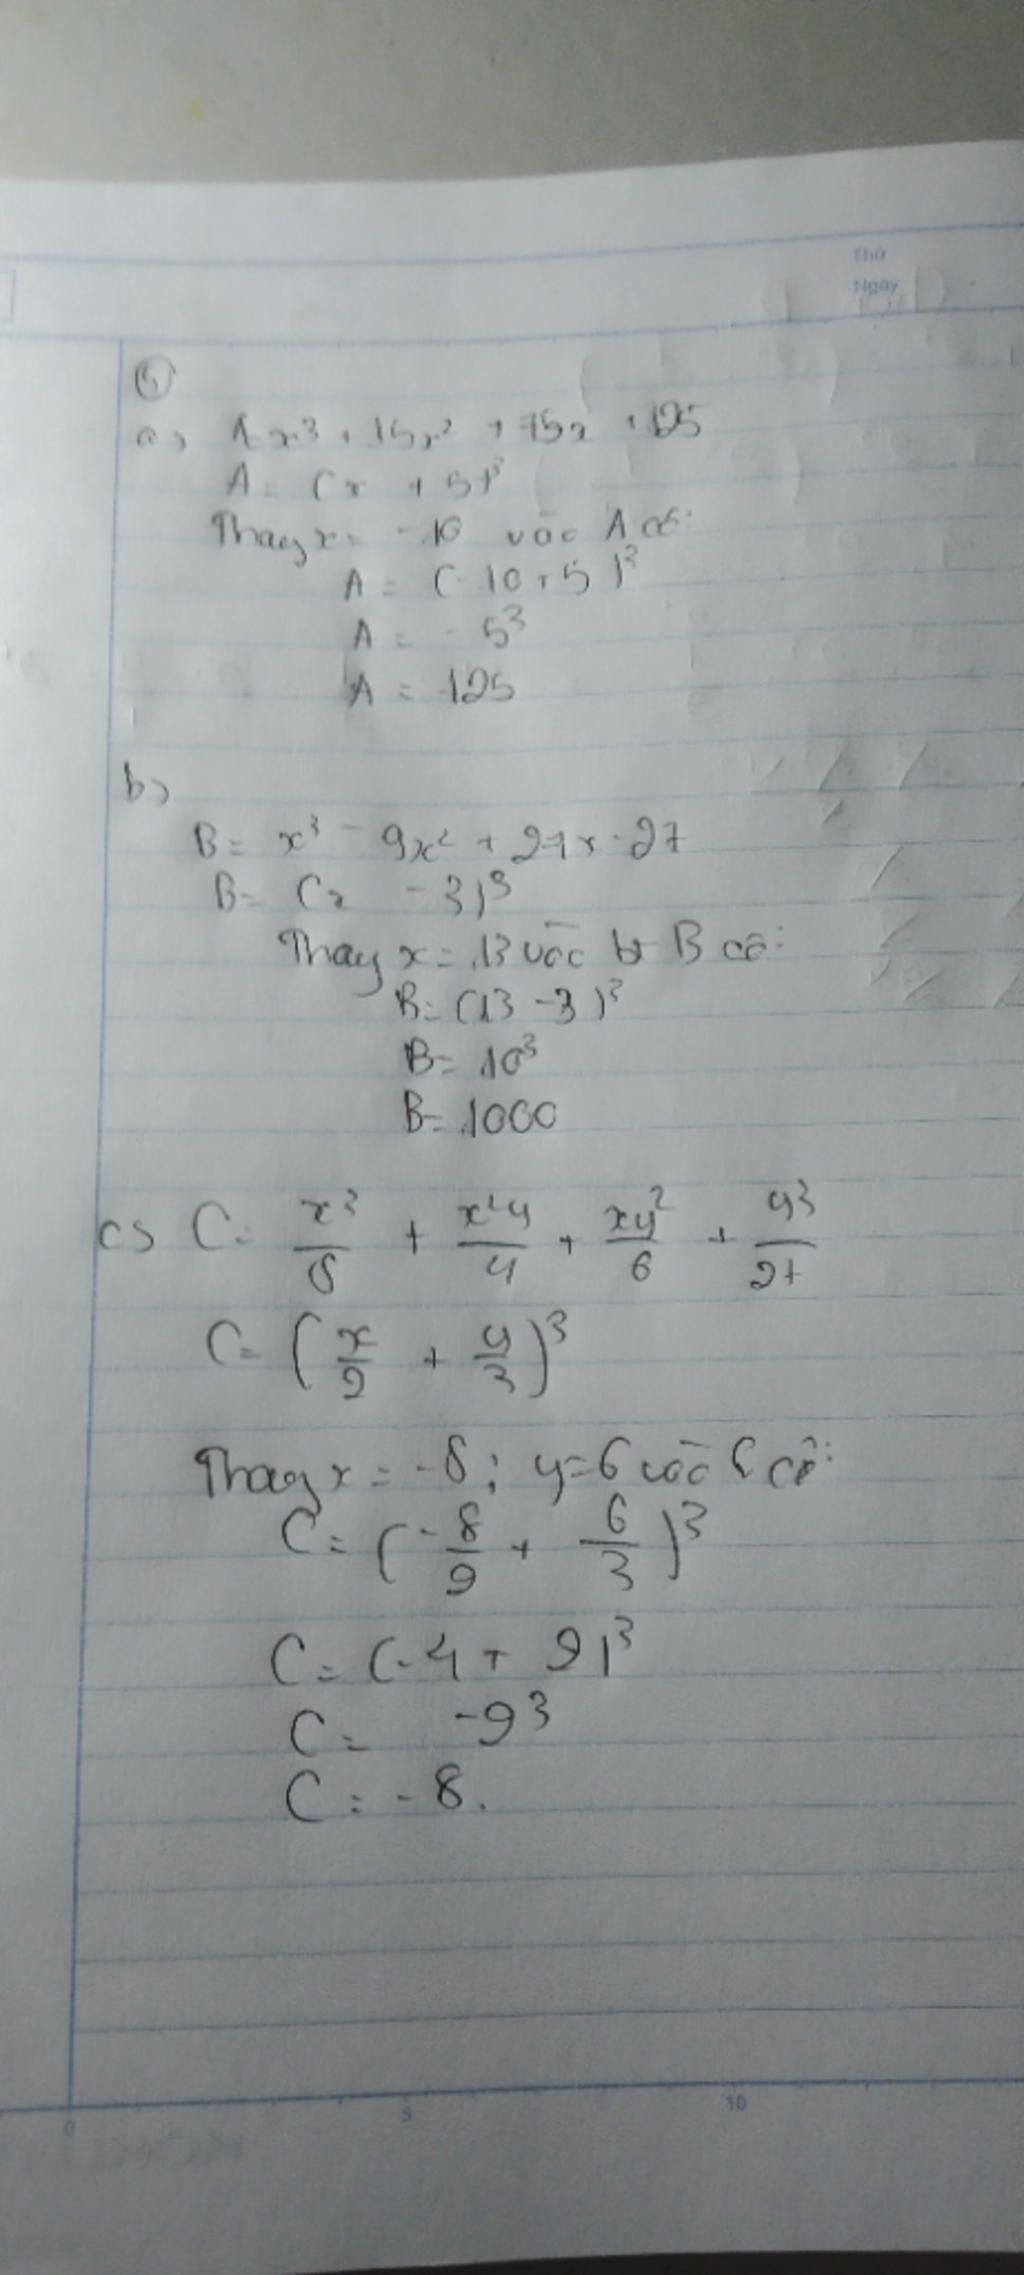 Thứ
Ngày
⑤
a) A x³ + 15x² + 75x + 125
A = (x + 5)³
Thay x = -10 vào A có:
A = (-10 + 5)³
A = -5³
A = 125
b)
B = x³ - 9x² + 27x - 27
B = (x - 3)³
Thay x = 13 vào B có:
B = (13 - 3)³
B = 10³
B = 1000
c) C = x³/8 + x²y/4 + xy²/6 + y³/27
C = (x/2 + y/3)³
Thay x = -8; y = 6 vào C có:
C = (-8/2 + 6/3)³
C = (-4 + 2)³
C = -2³
C = -8.
0 5 10